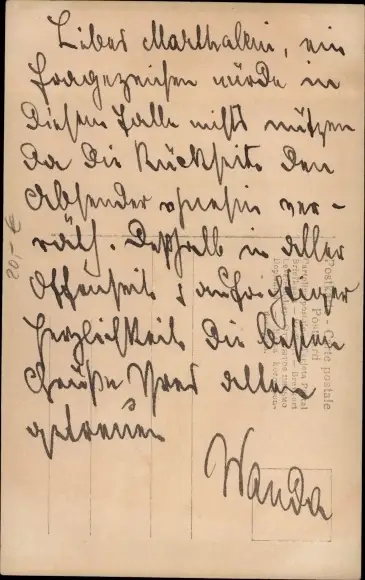 Liebes Marthalein, ein
Fragezeichen würde in
diesem Falle nichts nützen
da die Rückseite den
Absender ohnehin ver-
räth. Deßhalb in aller
Offenheit & aufrichtiger
Herzlichkeit die besten
Grüße Ihres allen
getreuen
Wanda
20,- €
Postkarte - Carte postale
Postcard